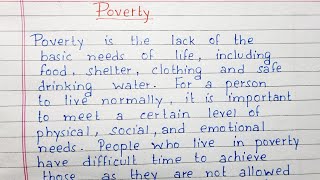 Poverty
Poverty is the lack of the
basic needs of life, including
food, shelter, clothing and safe
drinking water. For a person
to live normally, it is important
to meet a certain level of
physical, social, and emotional
needs. People who live in poverty
have difficult time to achieve
those as they are not allowed